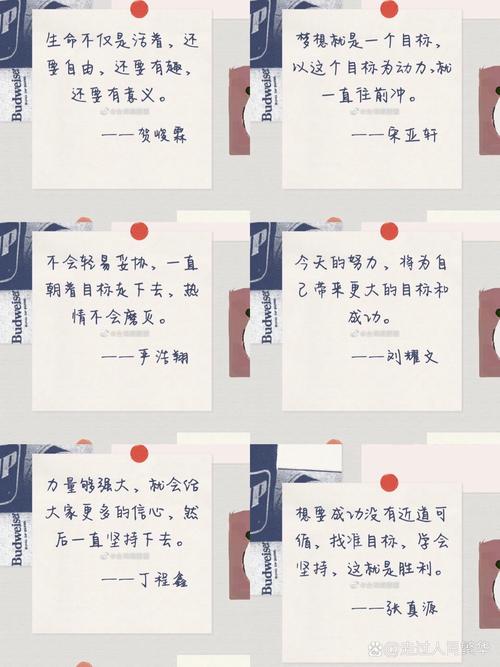 生命不仅是活着，还
要自由，还要有趣，
还要有意义。
——贺峻霖
Budweiser
梦想就是一个目标，
以这个目标为动力，就
一直往前冲。
——宋亚轩
Budweiser
不会轻易妥协，一直
朝着目标走下去，热
情不会磨灭。
——严浩翔
Budweiser
今天的努力，将为自
己带来更大的目标和
成功。
——刘耀文
Budweiser
力量够强大，就会给
大家更多的信心，然
后一直坚持下去。
——丁程鑫
Budweiser
想要成功没有近道可
循，找准目标，学会
坚持，这就是胜利。
——张真源
Budweiser
走过人间繁华